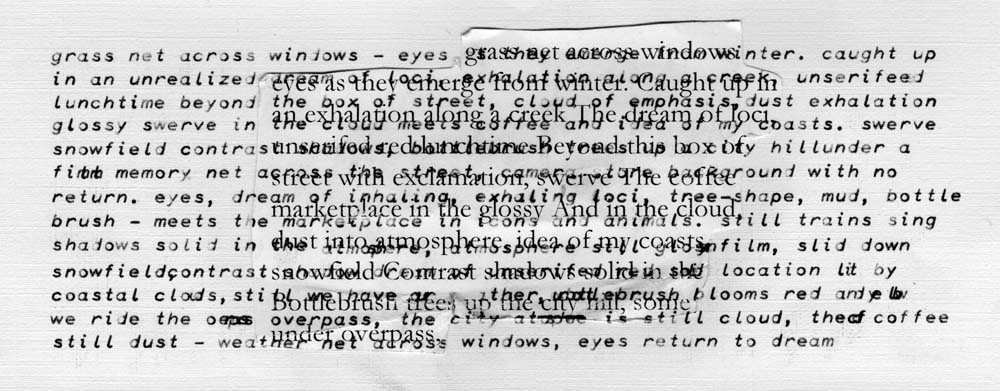 grass net across windows – eyes as they emerge from winter. caught up
in an unrealized dream of loci, exhalation along a creek, unserifeed
lunchtime beyond the box of street, cloud of emphasis, dust exhalation
glossy swerve in the cloud meets coffee and idea of my coasts. swerve
snowfield contrast shadows, bottlebrush trees up a city hillunder a
memory net across the street, camera background with no
return. eyes, dream of inhaling, exhaling loci, tree-shape, mud, bottle
brush – meets the marketplace in icons and animals. still trains sing
shadows solid in the atmosphere, atmosphere film, slid down
snowfield,contrast location lit by
coastal we have brush blooms red
we ride the overpass, the city is still cloud, coffee
still dust – weather net across windows, eyes return to dream
grass net across windows
eyes as they emerge from winter. Caught up in
an exhalation along a creek The dream of loci,
unserifed lunchtime Beyond this box of
street with exclamation, swerve The coffee
marketplace in the glossy And in the cloud,
dust into atmosphere, idea of my coasts
snowfield Contrast shadows solid in the
bottlebrush trees up the city hill, some
under overpass